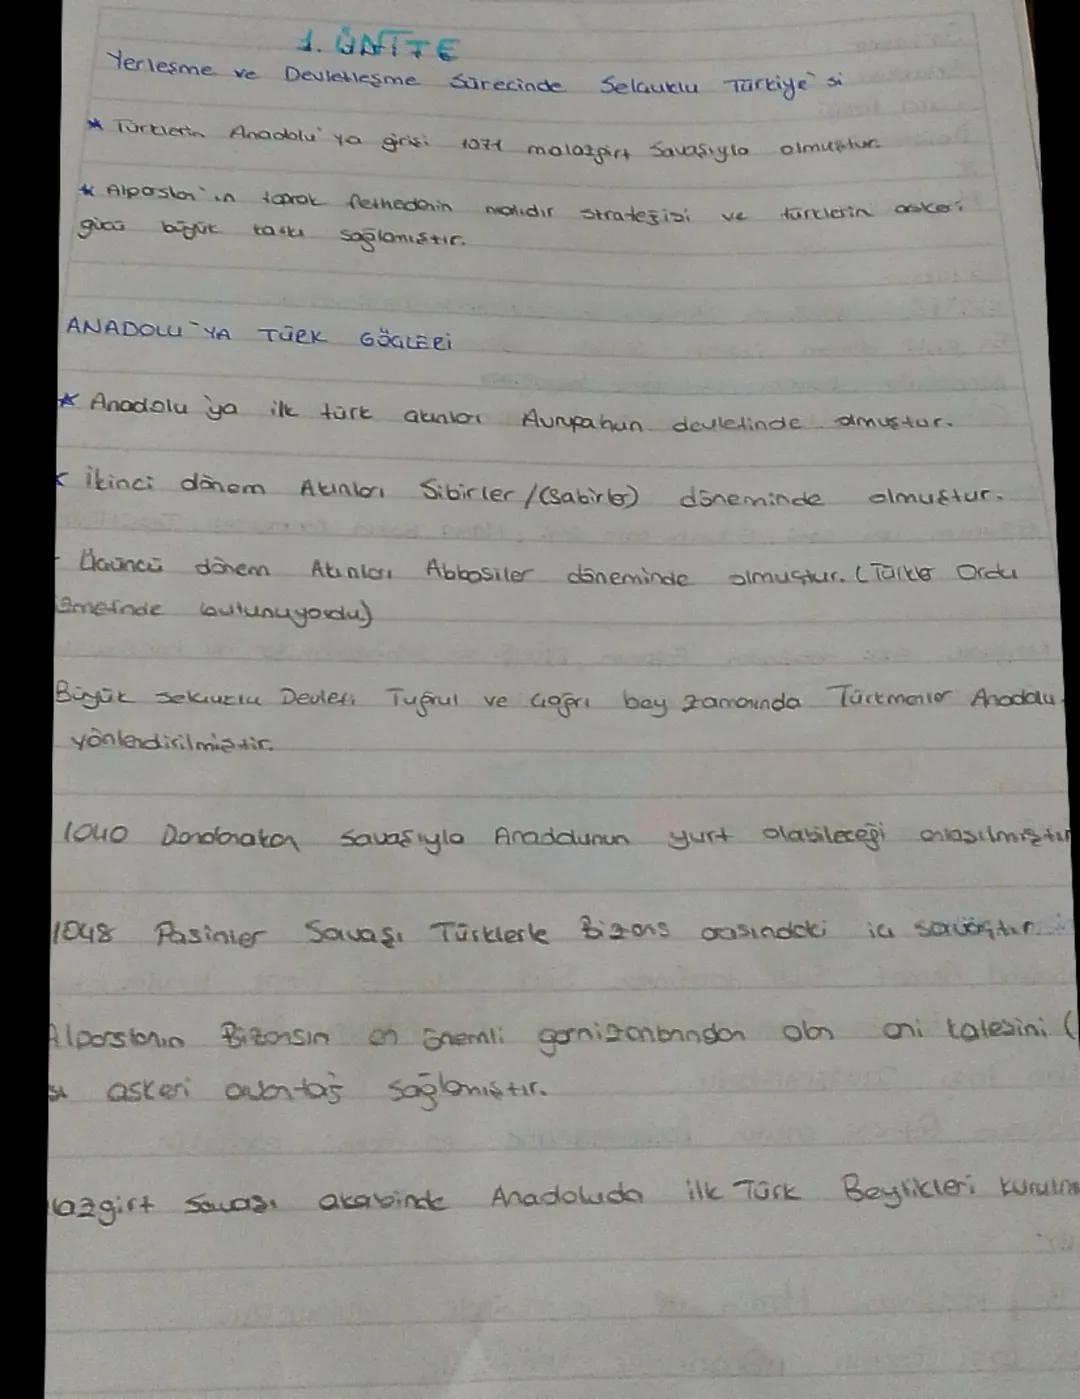 1. ÜNİTE
Yerleşme ve Devletleşme Sürecinde Selçuklu Türkiye'si
* Türklerin Anadolu'ya girişi 1071 malazgirt Savaşıyla olmuştur.
* Alparslan'ın toprak fethedenin malıdır stratejisi ve türklerin askeri
gücü büyük katkı sağlamıştır.
ANADOLU'YA TÜRK GÖÇLERİ
* Anadolu'ya ilk türk akınları Avrupahun devletinde olmuştur.
* İkinci dönem Akınları Sibirler /(Sabirler) döneminde olmuştur.
Üçüncü dönem Akınları Abbasiler döneminde olmuştur. (Türkler Ordu
bulunuyordu)
Büyük Selçuklu Devleti Tuğrul ve Çağrı bey zamanında Türkmenler Anadolu
yönlendirilmiştir.
1040 Dandanakan Savaşıyla Anadolunun yurt olabileceği anlaşılmıştır
1048 Pasinler Savaşı Türklerle Bizans arasındaki ilk savaştır.
Alparslanın Bizansın en önemli garnizonlarından olan ani kalesini (
sı askeri avantaj sağlamıştır.
lazgirt Savaşı akabinde Anadoluda ilk Türk Beylikleri kurulm